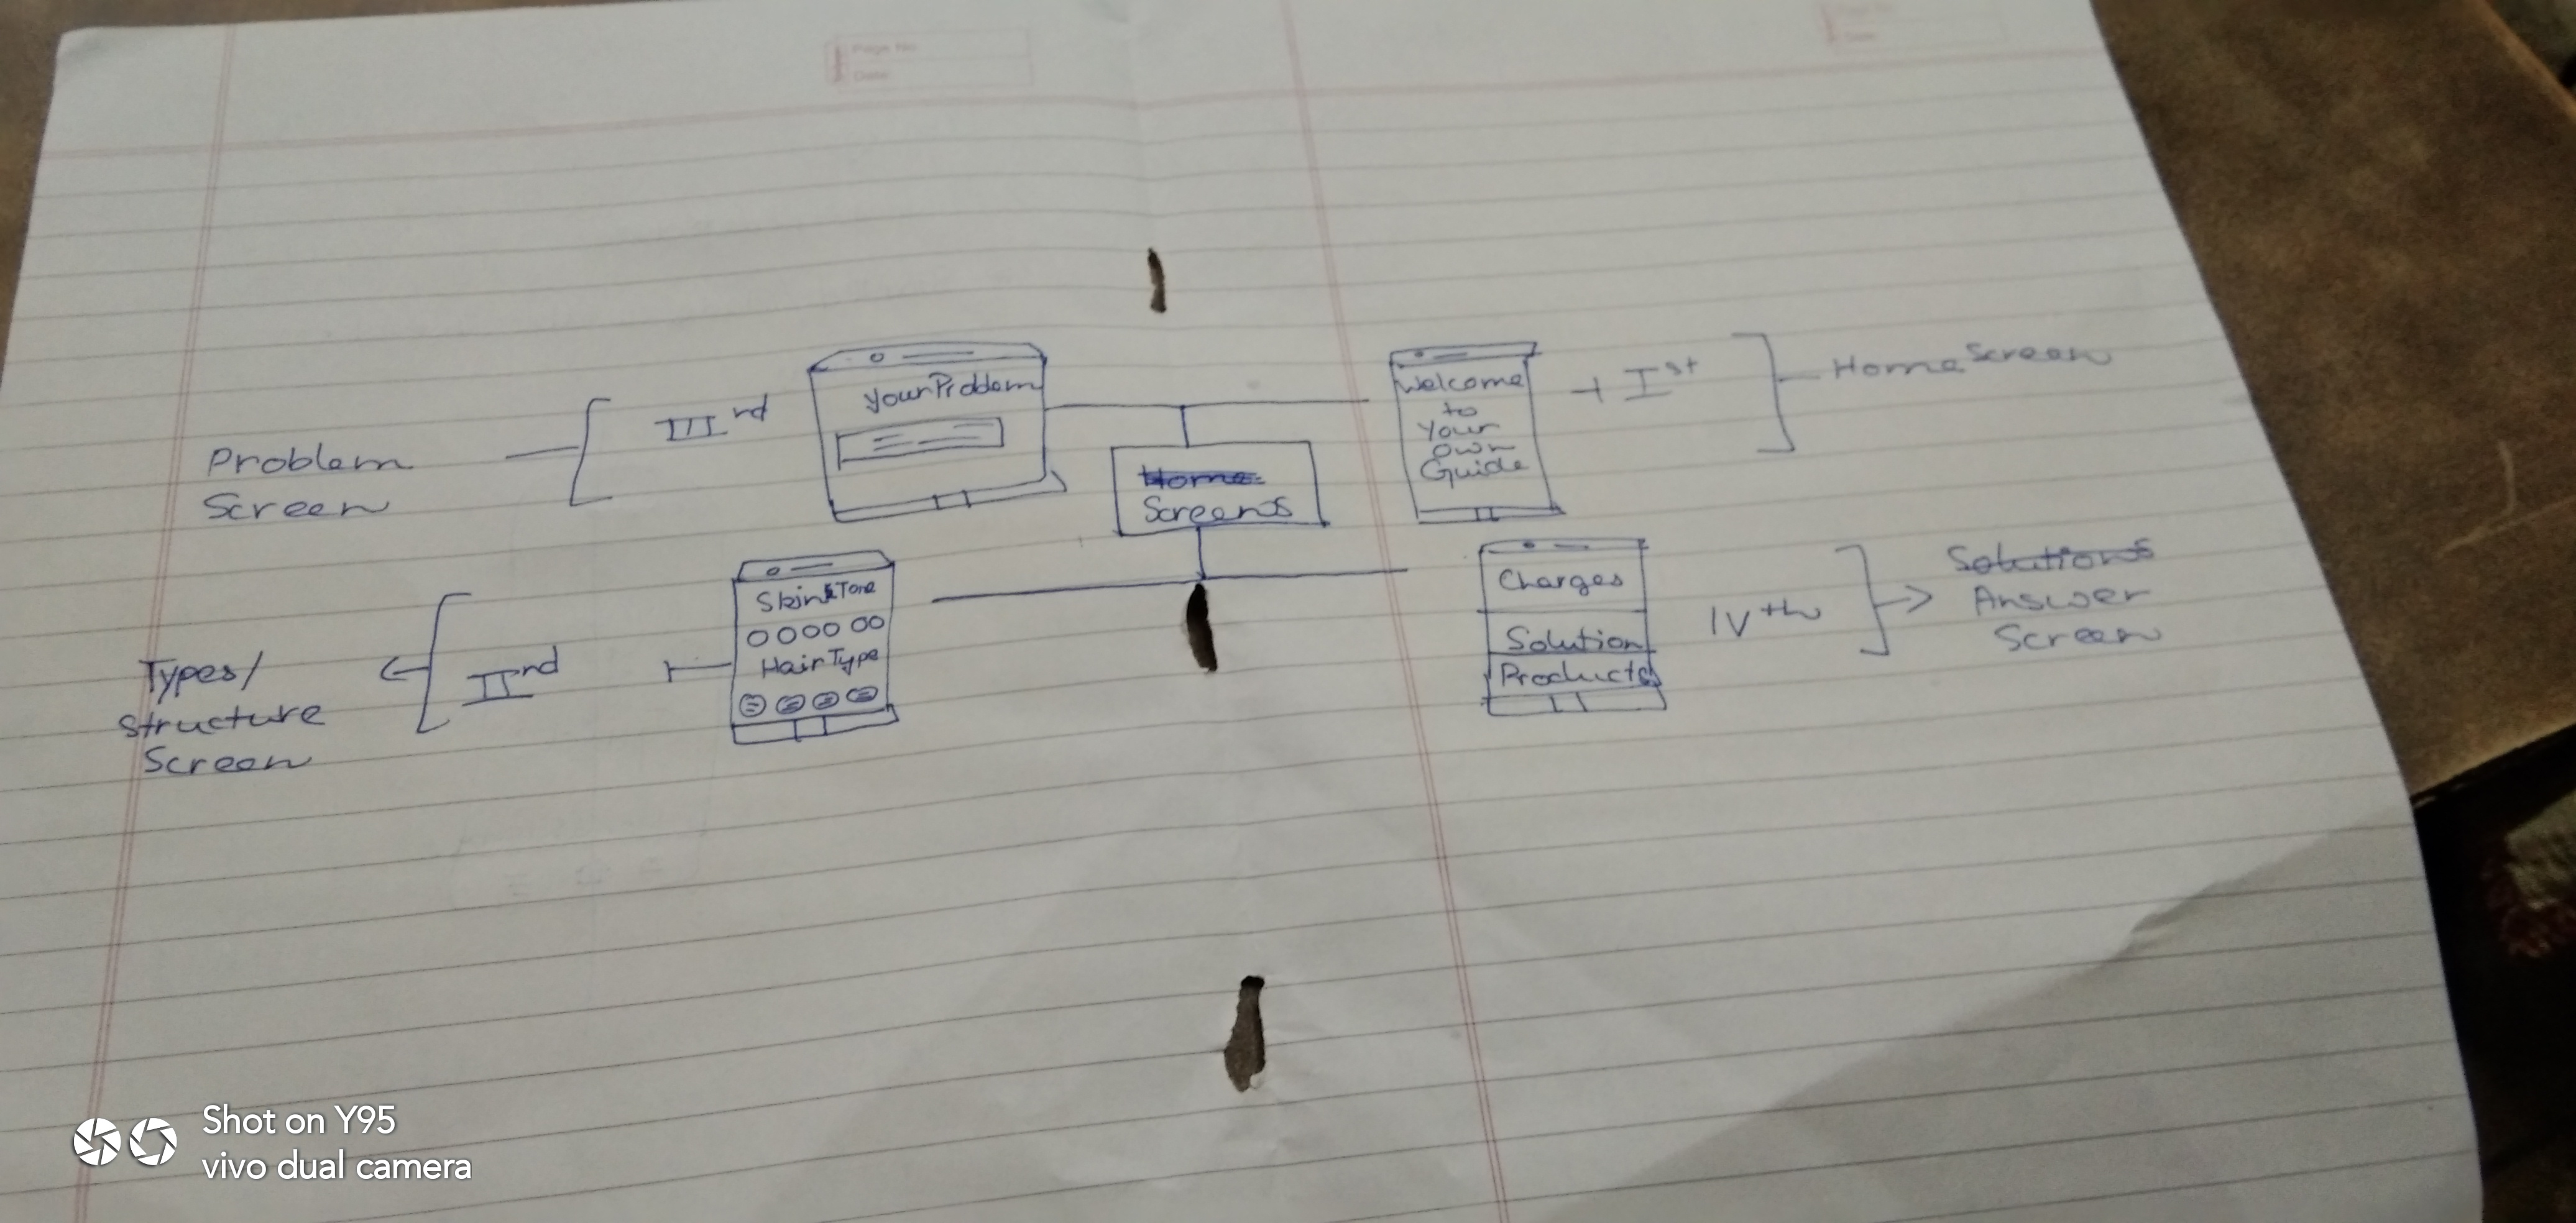 Page No
Date
Problem
Screen
III rd
Your Problem
Home
Screens
Welcome
to
Your
own
Guide
I st
Home Screen
Types/
Structure
Screen
II rd
Skin Tone
Hair Type
Charges
Solution
Products
IV th
Solutions
Answer
Screen
Shot on Y95
vivo dual camera